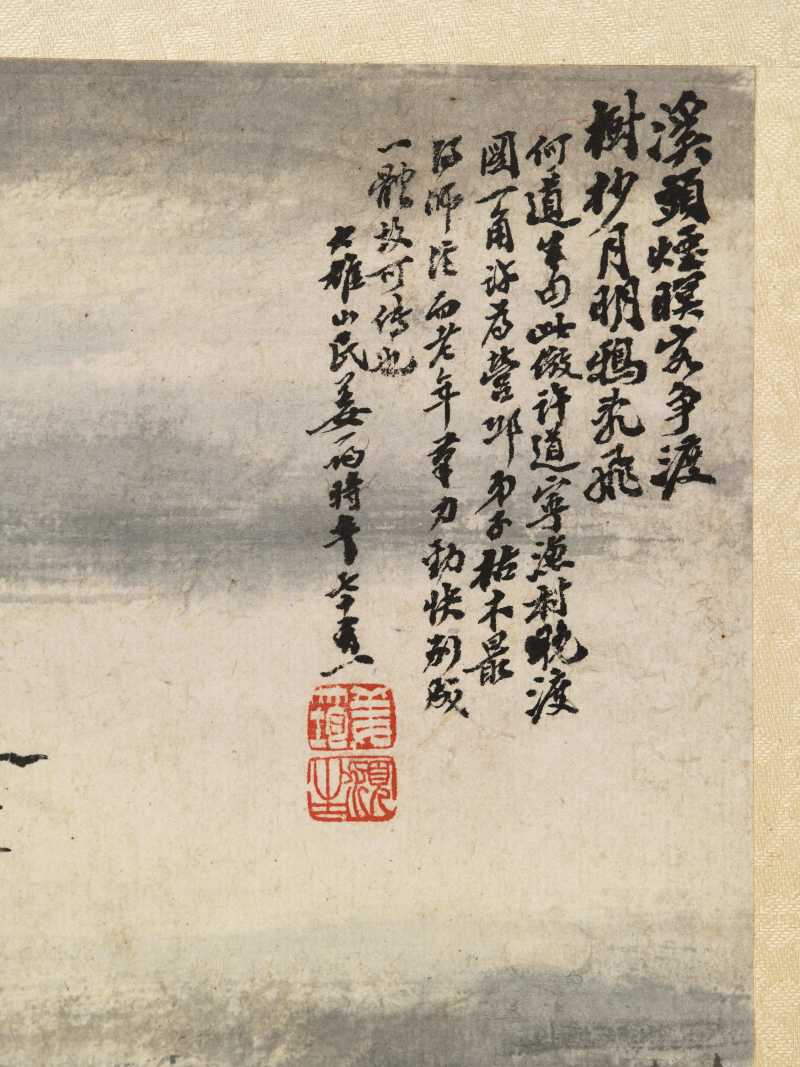 溪頭煙暝客爭渡
樹杪月明鴉亂飛
何道生句此倣許道寧漁村晚渡
圖一角許為營邱弟子枯木最
得師法而老年筆力勁快別成
一體故可傳也
大雄山民姜筠時年七十有一
姜筠
穎生